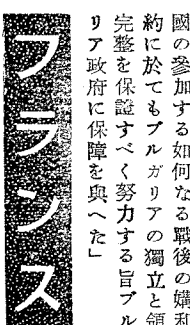 國の參加する如何なる戰後の媾和
約に於てもブルガリアの獨立と領
完整を保證すべく努力する旨ブル
リア政府に保障を與へた」
フランス